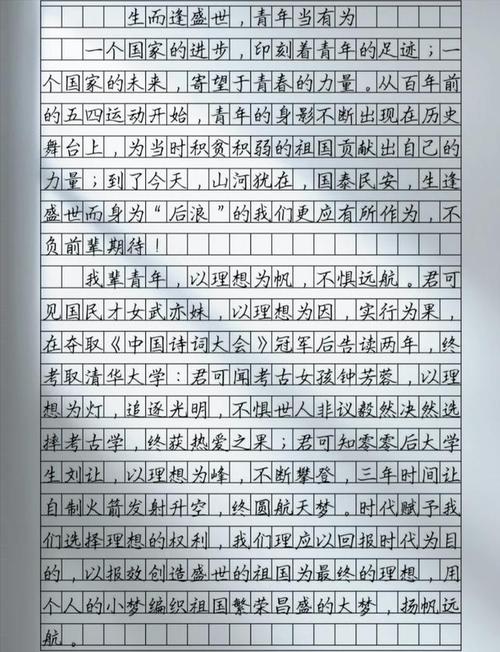 生而逢盛世，青年当有为
一个国家的进步，印刻着青年的足迹；一
个国家的未来，寄望于青春的力量。从百年前
的五四运动开始，青年的身影不断出现在历史
舞台上，为当时积贫积弱的祖国贡献出自己的
力量；到了今天，山河犹在，国泰民安，生逢
盛世而身为“后浪”的我们更应有所作为，不
负前辈期待！
我辈青年，以理想为帆，不惧远航。君可
见国民才女武亦妹，以理想为因，实行为果，
在夺取《中国诗词大会》冠军后告读两年，终
考取清华大学：君可闻考古女孩钟芳蓉，以理
想为灯，追逐光明，不惧世人非议毅然决然选
择考古学，终获热爱之果；君可知零零后大学
生刘让，以理想为峰，不断攀登，三年时间让
自制火箭发射升空，终圆航天梦。时代赋予我
们选择理想的权利，我们理应以回报时代为目
的，以报效创造盛世的祖国为最终的理想，用
个人的小梦编织祖国繁荣昌盛的大梦，扬帆远
航。